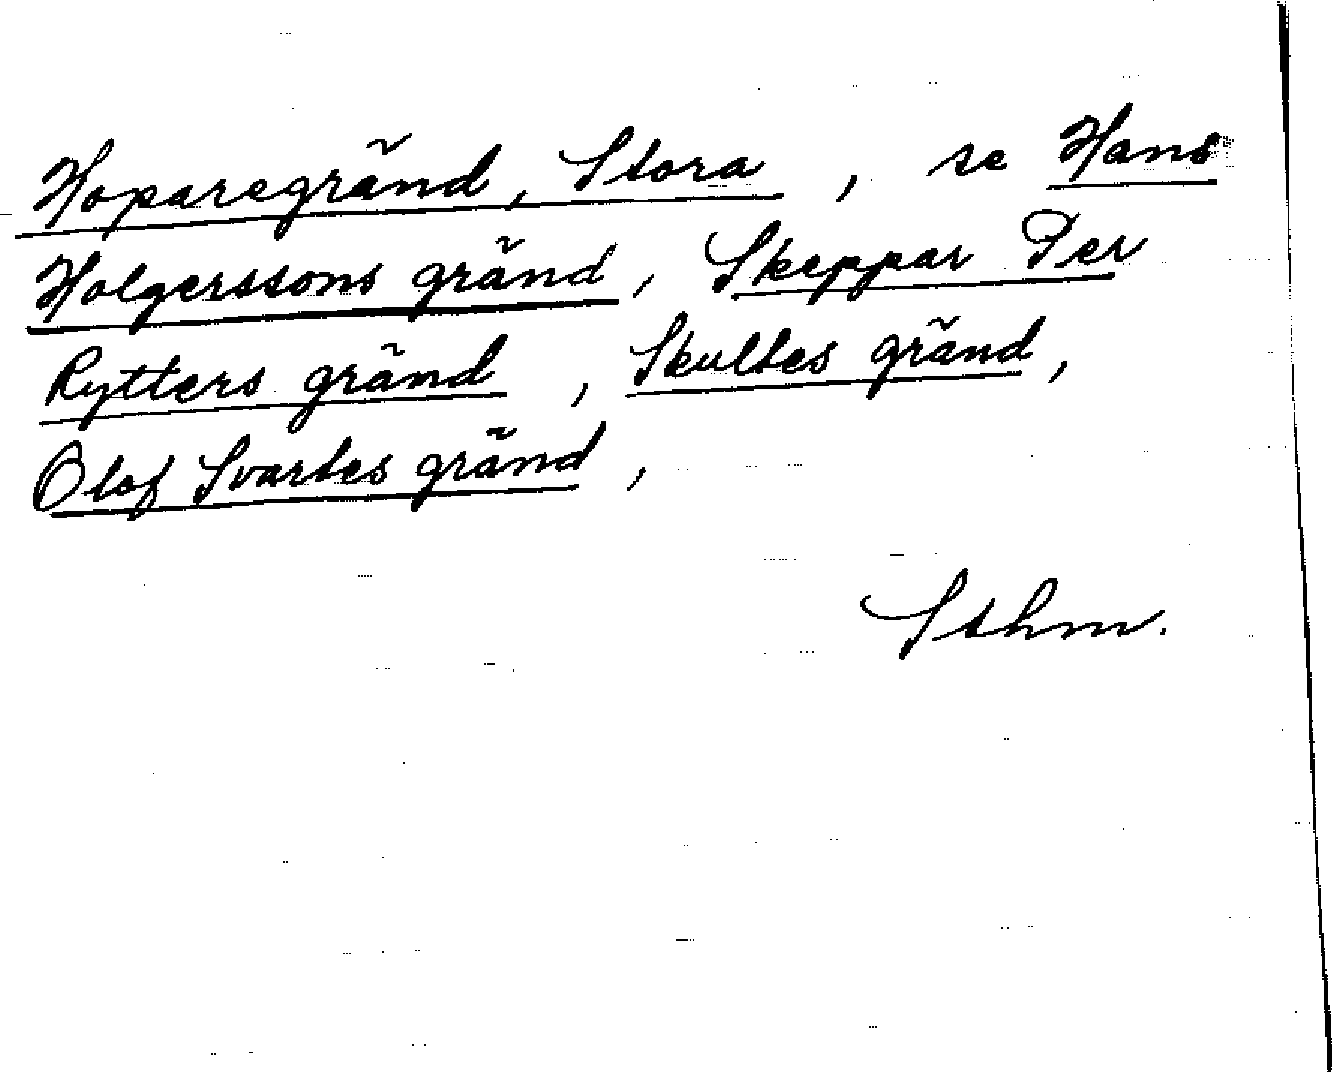 Hoparegränd, Stora, se Hans
Holgerssons gränd, Skeppar Per
Rytters gränd, Skultes gränd,
Olof Svartes gränd,
Sthm.